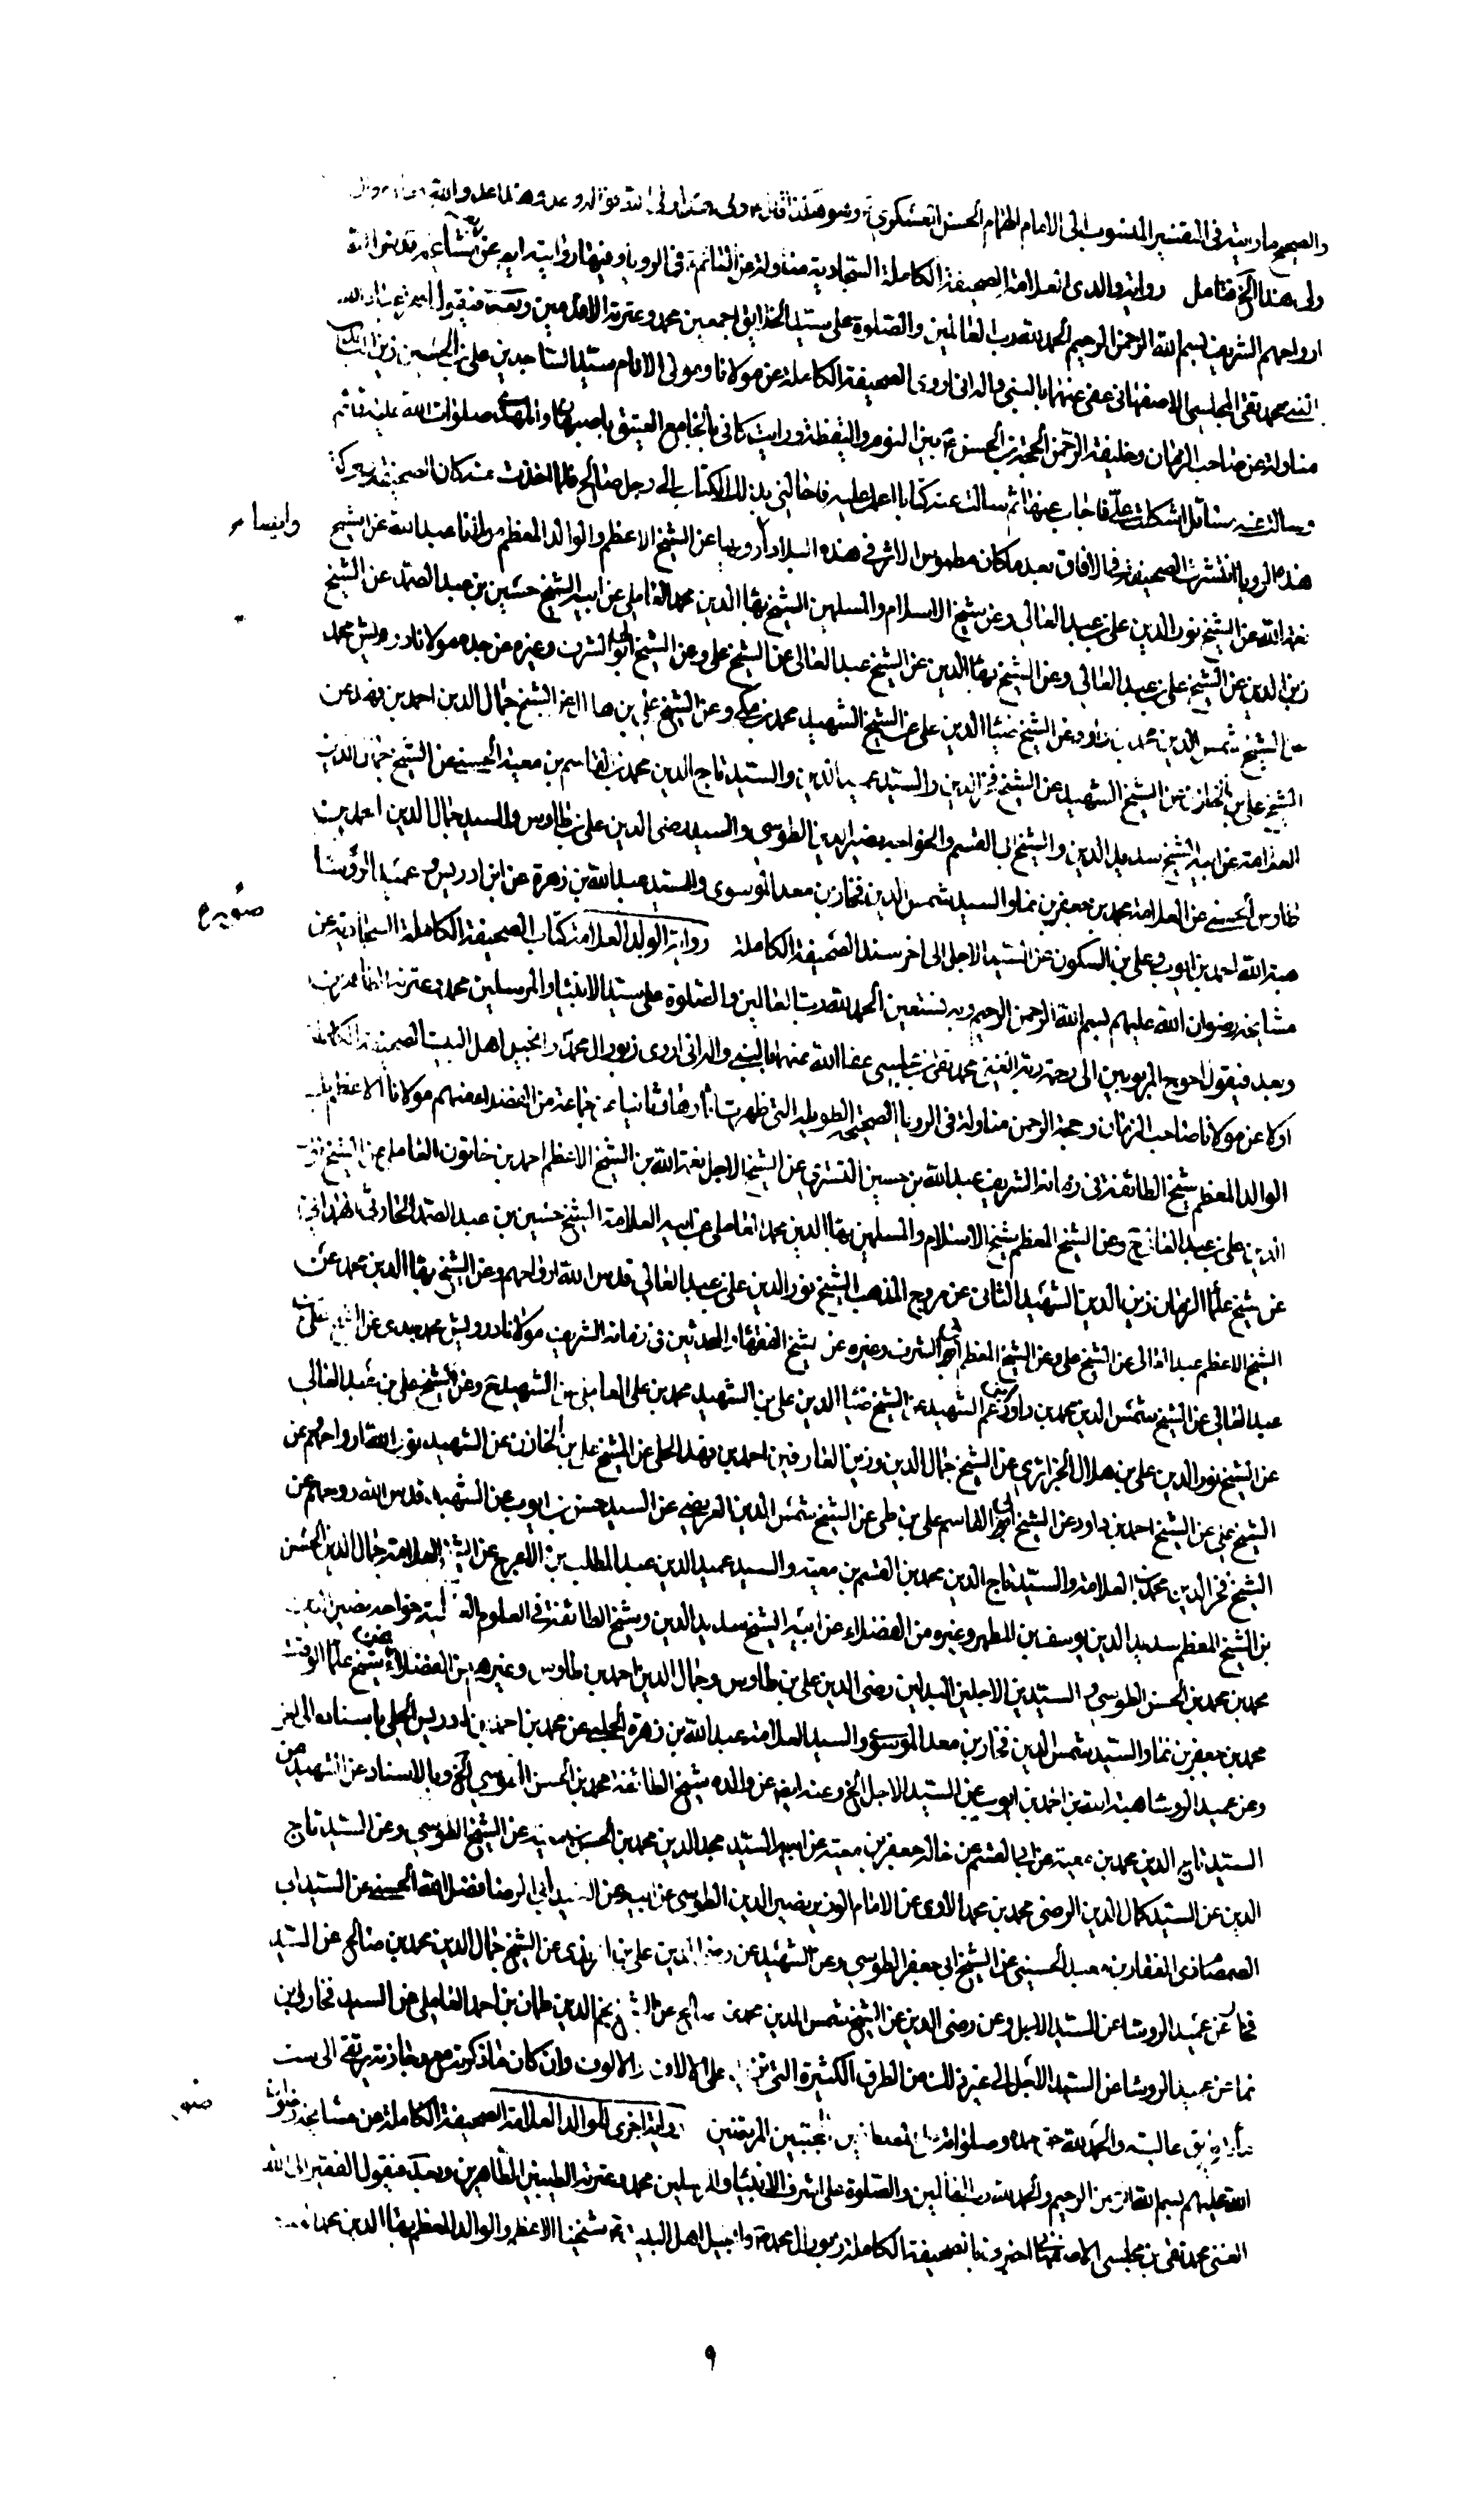 والصحيح ما رايته في التفسير المنسوب الى الامام الهمام الحسن العسكري
ولى هذا الخ فتامل رواية والدي العلامة الصحيفة الكاملة السجادية مناولة عن القائم في الرويا وفيها روايته ايضا عن مشايخه قدس الله
ارواحهم الشريفة بسم الله الرحمن الرحيم الحمد لله رب العالمين والصلوة على سيد الخلايق اجمعين محمد وعترته الاقدمين وبعد فيقول
الغني محمد تقي المجلسي الاصفهاني عفي عنهما بالنبي واله اني اروي الصحيفة الكاملة عن مولانا ومولى الانام سيد الساجدين علي بن الحسين زين العابدين
مناولة عن صاحب الزمان وخليفة الرحمن الحجة بن الحسن بين النوم واليقظة ورايت كاني بالجامع العتيق باصبهان والمهدي صلوات الله عليه قائم
وسالت عنه مسائل اشكلت علي فاجاب عنها ثم سالت عنه كتابا اعمل عليه فاحالني بذلك الكتاب الى رجل صالح فلما اخذت منه كان الصحيفة وببركة
هذه الرويا انتشرت الصحيفة في الافاق بعد ما كان مطموس الاثر في هذه البلاد وارويها عن الشيخ الاعظم والوالد المعظم مولانا عبد الله عن الشيخ
وايضا
نعمة الله عن الشيخ نور الدين علي بن عبد العالي وعن شيخ الاسلام والمسلمين الشيخ بهاء الدين محمد العاملي عن ابيه الشيخ حسين بن عبد الصمد عن الشيخ
زين الدين عن الشيخ علي بن عبد العالي وعن الشيخ بهاء الدين عن الشيخ عبد العالي عن الشيخ علي وعن الشيخ ابو الشرف وغيره عن جده مولانا درويش محمد
عن الشيخ شمس الدين محمد بن داود عن الشيخ ضياء الدين علي عن الشيخ الشهيد محمد بن مكي وعن الشيخ علي بن هلال عن الشيخ جمال الدين احمد بن فهد عن
الشيخ علي بن الخازن عن الشيخ الشهيد عن الشيخ فخر الدين والسيد عميد الدين والسيد تاج الدين محمد بن القاسم بن معية الحسني عن الشيخ جمال الدين
العلامة عن ابيه الشيخ سديد الدين والشيخ ابي القسم والخواجه نصير الدين الطوسي والسيد رضي الدين علي بن طاوس والسيد جمال الدين احمد بن
طاوس الحسني عن العلامة محمد بن جعفر بن نما والسيد شمس الدين فخار بن معد الموسوي والسيد عبد الله بن زهرة عن ابن ادريس وعميد الرؤساء
هبة الله احمد بن ايوب وعلي بن السكون عن السيد الاجل الى اخر سند الصحيفة الكاملة رواية الوالد العلامة كتاب الصحيفة الكاملة السجادية عن
مشايخه رضوان الله عليهم بسم الله الرحمن الرحيم وبه نستعين الحمد لله رب العالمين والصلوة على سيد الانبياء والمرسلين محمد وعترته الطاهرين
وبعد فيقول احوج المربوبين الى رحمة ربه الغني محمد تقي بن مجلسي عفا الله عنهما بالنبي واله اني اروي زبور ال محمد وانجيل اهل البيت الصحيفة الكاملة
اولا عن مولانا صاحب الزمان وحجة الرحمن مناولة في الرويا الصحيحة الطويلة التي ظهرت اثارها وثانيا عن جماعة من الفضلاء منهم مولانا الاعظم
الوالد المعظم شيخ الطائفة في زمانه الشريف عبد الله بن حسين التستري عن الشيخ الاجل نعمة الله بن الشيخ الاعظم احمد بن خاتون العاملي عن الشيخ نور
الدين علي بن عبد العالي وعن الشيخ المعظم شيخ الاسلام والمسلمين بهاء الدين محمد العاملي عن ابيه العلامة الشيخ حسين بن عبد الصمد الحارثي الهمداني
عن شيخ علماء الزمان زين الدين الشهيد الثاني عن مروج المذهب الشيخ نور الدين علي بن عبد العالي قدس الله ارواحهم وعن الشيخ بهاء الدين محمد عن
الشيخ الاعظم عبد العالي عن الشيخ علي وعن الشيخ المعظم ابو الشرف وغيره عن شيخ الفقهاء والمحدثين في زمانه الشريف مولانا درويش محمد جدي عن الشيخ علي بن
عبد العالي عن الشيخ شمس الدين محمد بن داود عم الشهيد عن الشيخ ضياء الدين علي بن الشهيد محمد بن علي العاملي عن الشهيد وعن الشيخ علي بن عبد العالي
عن الشيخ نور الدين علي بن هلال الجزائري عن الشيخ جمال الدين وزين العارفين احمد بن فهد الحلي عن الشيخ علي بن الخازن عن الشهيد نور الله ارواحهم وعن
الشيخ علي عن الشيخ احمد بن داود عن الشيخ ابي القاسم علي بن طي عن الشيخ شمس الدين العريضي عن السيد حسن بن ايوب عن الشهيد قدس الله روحهم عن
الشيخ فخر الدين محمد بن العلامة والسيد تاج الدين محمد بن القسم بن معية والسيد عميد الدين عبد المطلب بن الاعرج عن الشيخ العلامة جمال الدين الحسن
بن الشيخ المعظم سديد الدين يوسف بن المطهر وغيره من الفضلاء عن ابيه الشيخ سديد الدين وشيخ الطائفة في العلوم خواجه نصير الدين
محمد بن محمد بن الحسن الطوسي والسيدين الاجلين النبيلين رضي الدين علي بن طاوس وجمال الدين احمد بن طاوس وغيرهم من الفضلاء عن شيخ علماء الوقت
محمد بن جعفر بن نما والسيد شمس الدين فخار بن معد الموسوي والسيد العلامة عبد الله بن زهرة الحلبي عن محمد بن احمد بن ادريس الحلي باسناده
وعن عميد الروساء هبة الله بن احمد بن ايوب عن السيد الاجل الخ وعنه ايضا عن والده شيخ الطائفة محمد بن الحسن الطوسي الخ وبالاسناد عن الشهيد عن
السيد تاج الدين محمد بن معية عن ابي القسم عن خاله جعفر بن معية عن ابيه السيد مجد الدين محمد بن الحسن بن معية عن الشيخ الطوسي وعن السيد تاج
الدين عن السيد كمال الدين الرضي محمد بن محمد الاوي عن الامام الوزير نصير الدين الطوسي عن ابيه عن السيد ابي الرضا فضل الله الحسني عن السيد اب
الصمصام ذي الفقار بن معبد الحسيني عن الشيخ ابي جعفر الطوسي وعن الشهيد عن رضي الدين علي بن المزيدي عن الشيخ جمال الدين محمد بن صالح عن السيد
فخار عن عميد الروساء عن السيد الاجل وعن رضي الدين عن الشيخ شمس الدين محمد بن صالح عن الشيخ نجم الدين طمان بن احمد العاملي عن السيد فخار وابن
نما عن عميد الروساء عن السيد الاجل الى غير ذلك من الطرق الكثيرة التي تزيد على الالاف والالوف وان كان ما ذكرته يرتقي الى ست
طريق عالية والحمد لله حق حمده وصلواته المجتبين المرتضين رواية اخرى للوالد العلامة الصحيفة الكاملة عن مشايخه رضوان
الله عليهم بسم الله الرحمن الرحيم والحمد لله رب العالمين والصلوة على اشرف الانبياء والمرسلين محمد وعترته الطيبين الطاهرين وبعد فيقول الفقير الى الله
الغني محمد تقي بن مجلسي الاصفهاني اخبرني بالصحيفة الكاملة زبور ال محمد وانجيل اهل البيت شيخنا الاعظم والوالد المعظم بهاء الدين محمد
٩